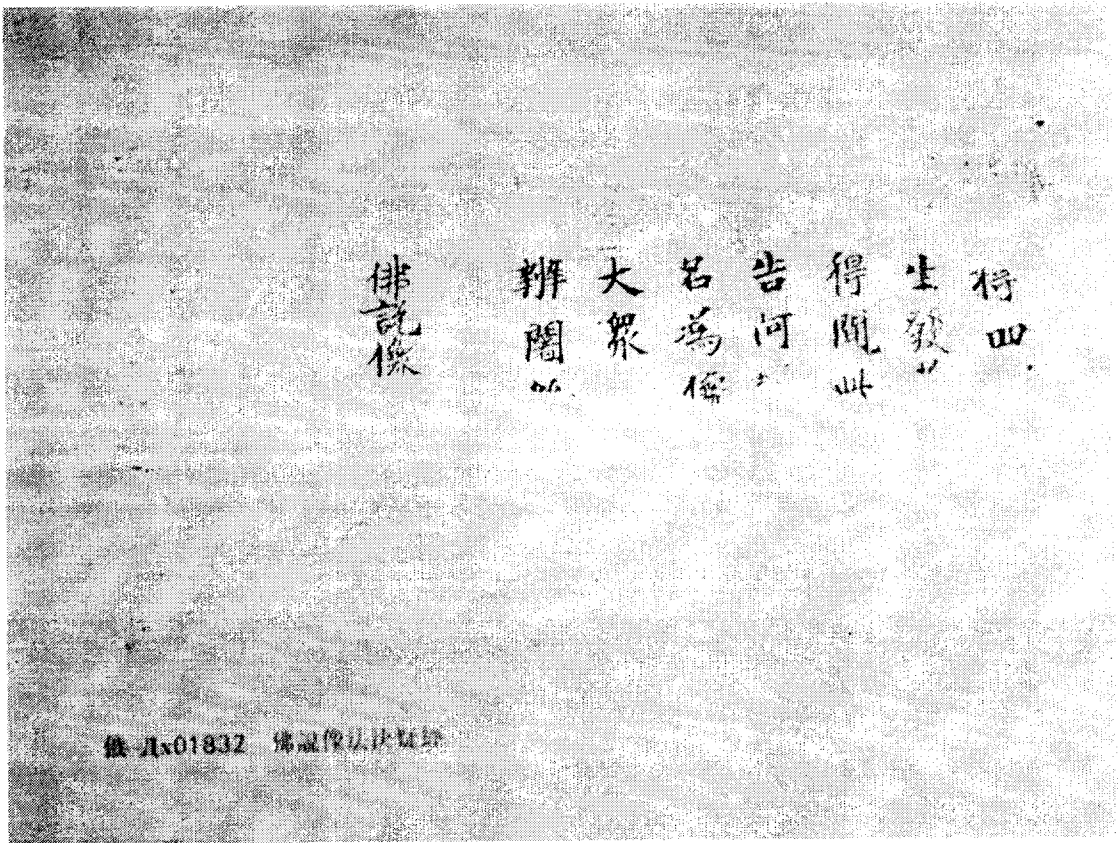 得四
生發
得聞此
告阿
名為像
大眾
辦闍
佛說像
俄 Дx01832 佛說像法決疑經